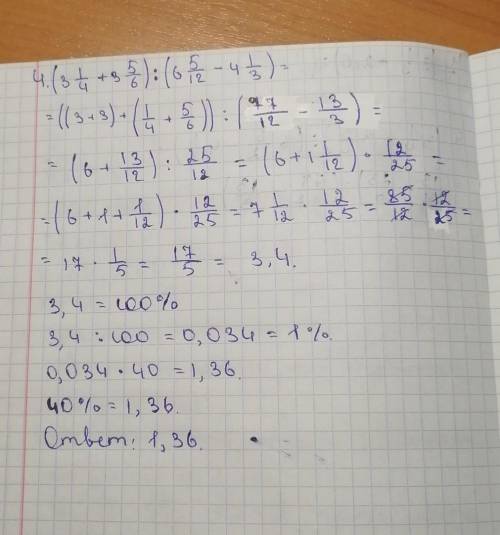 4. (3 1/4 + 3 5/6) : (6 5/12 - 4 1/3) =
= ((3+3) + (1/4 + 5/6)) : (77/12 - 13/3) =
= (6 + 13/12) : 25/12 = (6 + 1 1/12) · 12/25 =
= (6 + 1 + 1/12) · 12/25 = 7 1/12 · 12/25 = 85/12 · 12/25 =
= 17 · 1/5 = 17/5 = 3,4.
3,4 = 100%
3,4 : 100 = 0,034 = 1%.
0,034 · 40 = 1,36.
40% = 1,36.
Ответ: 1,36.